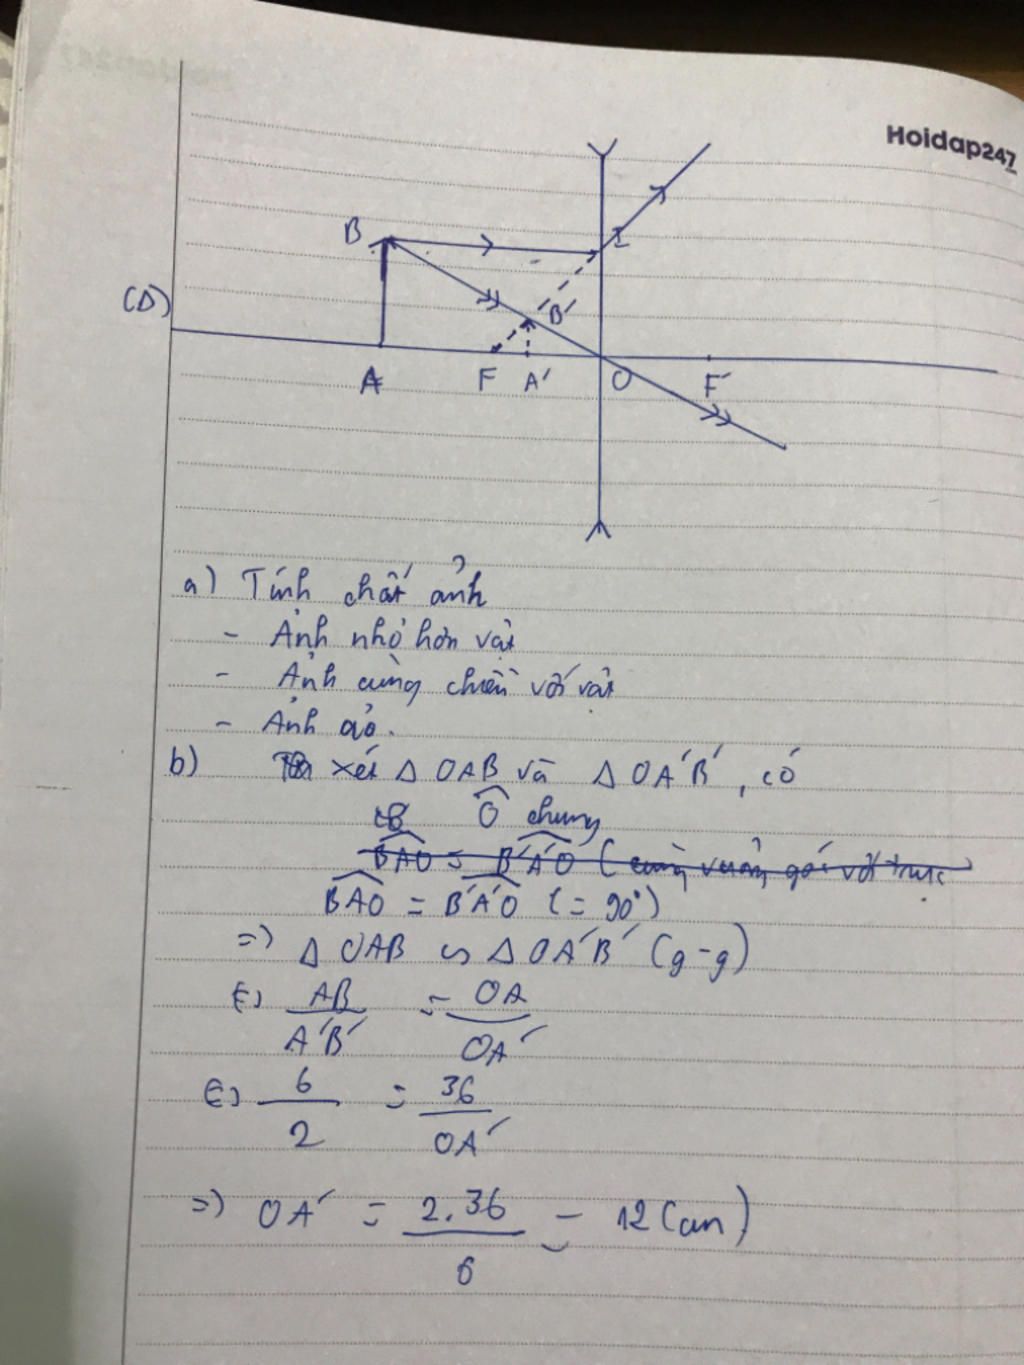 Hoidap247
B
I
(Δ)
B'
A
F
A'
O
F'
a) Tính chất ảnh
- Ảnh nhỏ hơn vật
- Ảnh cùng chiều với vật
- Ảnh ảo.
b) xét Δ OAB và Δ OA'B', có
Ô chung
BAO = B'A'O (cùng vuông góc với trục
BAO = B'A'O (= 90°)
=> Δ OAB ∽ Δ OA'B' (g-g)
<=> AB/A'B' = OA/OA'
<=> 6/2 = 36/OA'
=> OA' = 2.36/6 = 12 (cm)